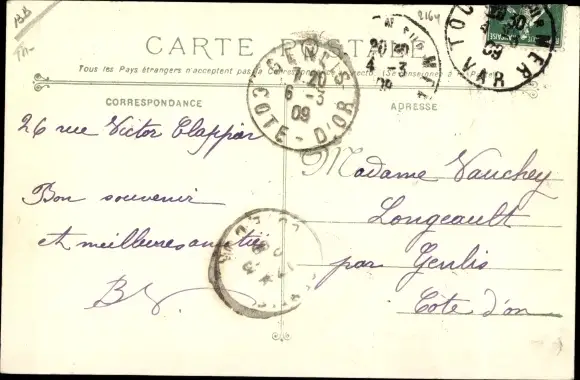 BB
2164
CARTE POSTALE
Tous les Pays étrangers n'acceptent pas la Correspondance au recto (Se renseigner à la Poste)
CORRESPONDANCE
ADRESSE
GENLIS
7 20
6 - 3
09
COTE-D'OR
20 30
4 - 3
09
TOULON MER
4 - 3
09
VAR
26 rue Victor Clappier
Bon souvenir
et meilleures amitiés
Madame Vauchey
Longeault
par Genlis
Cote d'or